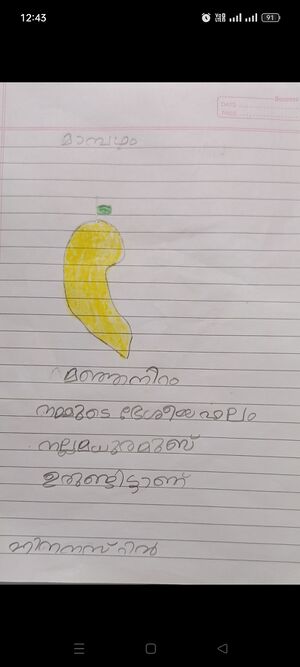 12:43
91
DATE
PAGE
മാമ്പഴം
മഞ്ഞാനിറം
നമ്മുടെ ദേശീയ ഫലം
നല്ലമധുരമുണ്
ഉരുണ്ടിട്ടാണ്